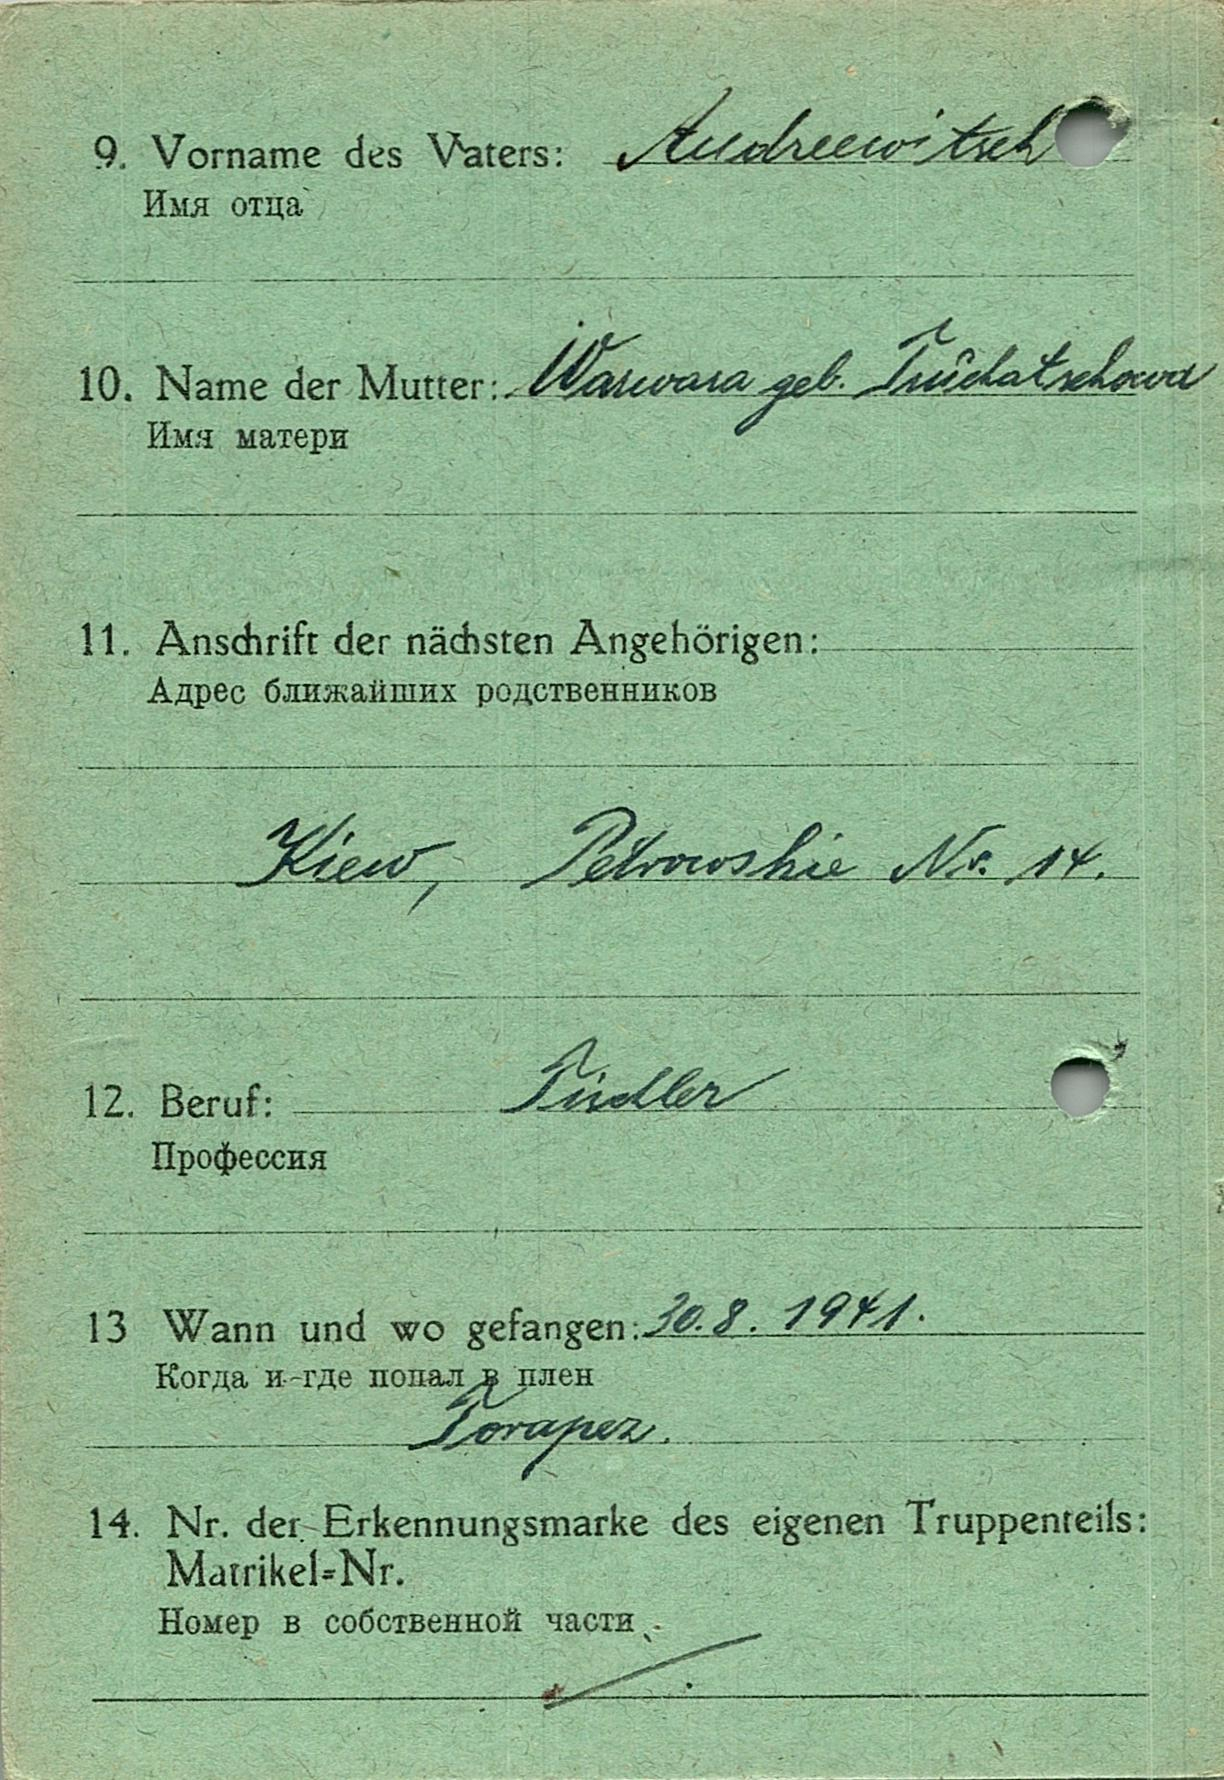 9. Vorname des Vaters: Andreewitsch
Имя отца
10. Name der Mutter: Warwara geb.
Имя матери
11. Anschrift der nächsten Angehörigen:
Адрес ближайших родственников
Kiew, Petrowskie Nr. 14.
12. Beruf:
Профессия
13 Wann und wo gefangen: 30. 8. 1941.
Когда и где попал в плен
Torapez.
14. Nr. der Erkennungsmarke des eigenen Truppenteils:
Matrikel=Nr.
Номер в собственной части